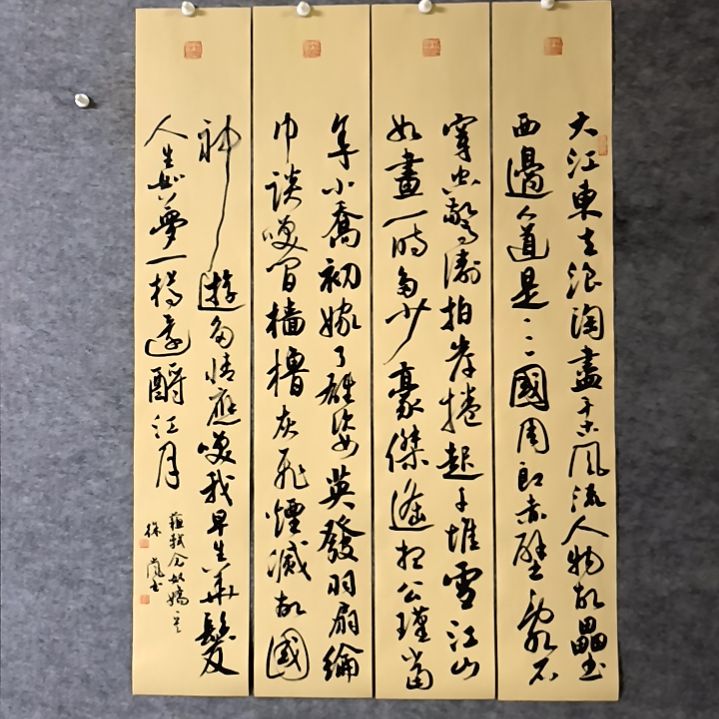 大江東去浪淘盡千古風流人物故壘
西邊人道是三國周郎赤壁亂石
穿空驚濤拍岸捲起千堆雪江山
如畫一時多少豪傑遙想公瑾當
年小喬初嫁了雄姿英發羽扇綸
巾談笑間檣櫓灰飛煙滅故國
神遊多情應笑我早生華髮
人生如夢一樽還酹江月
蘇軾念奴嬌
徐嵐書